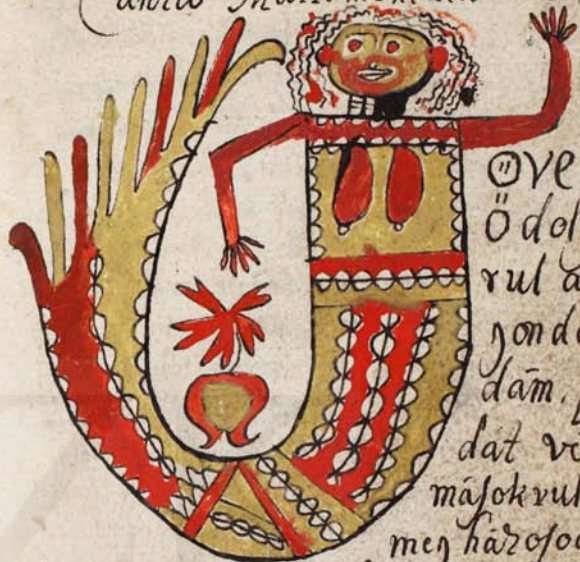 Öve
Ö dol
rul a
gond
dám.
dat ve
máſokrul
meg házoſod